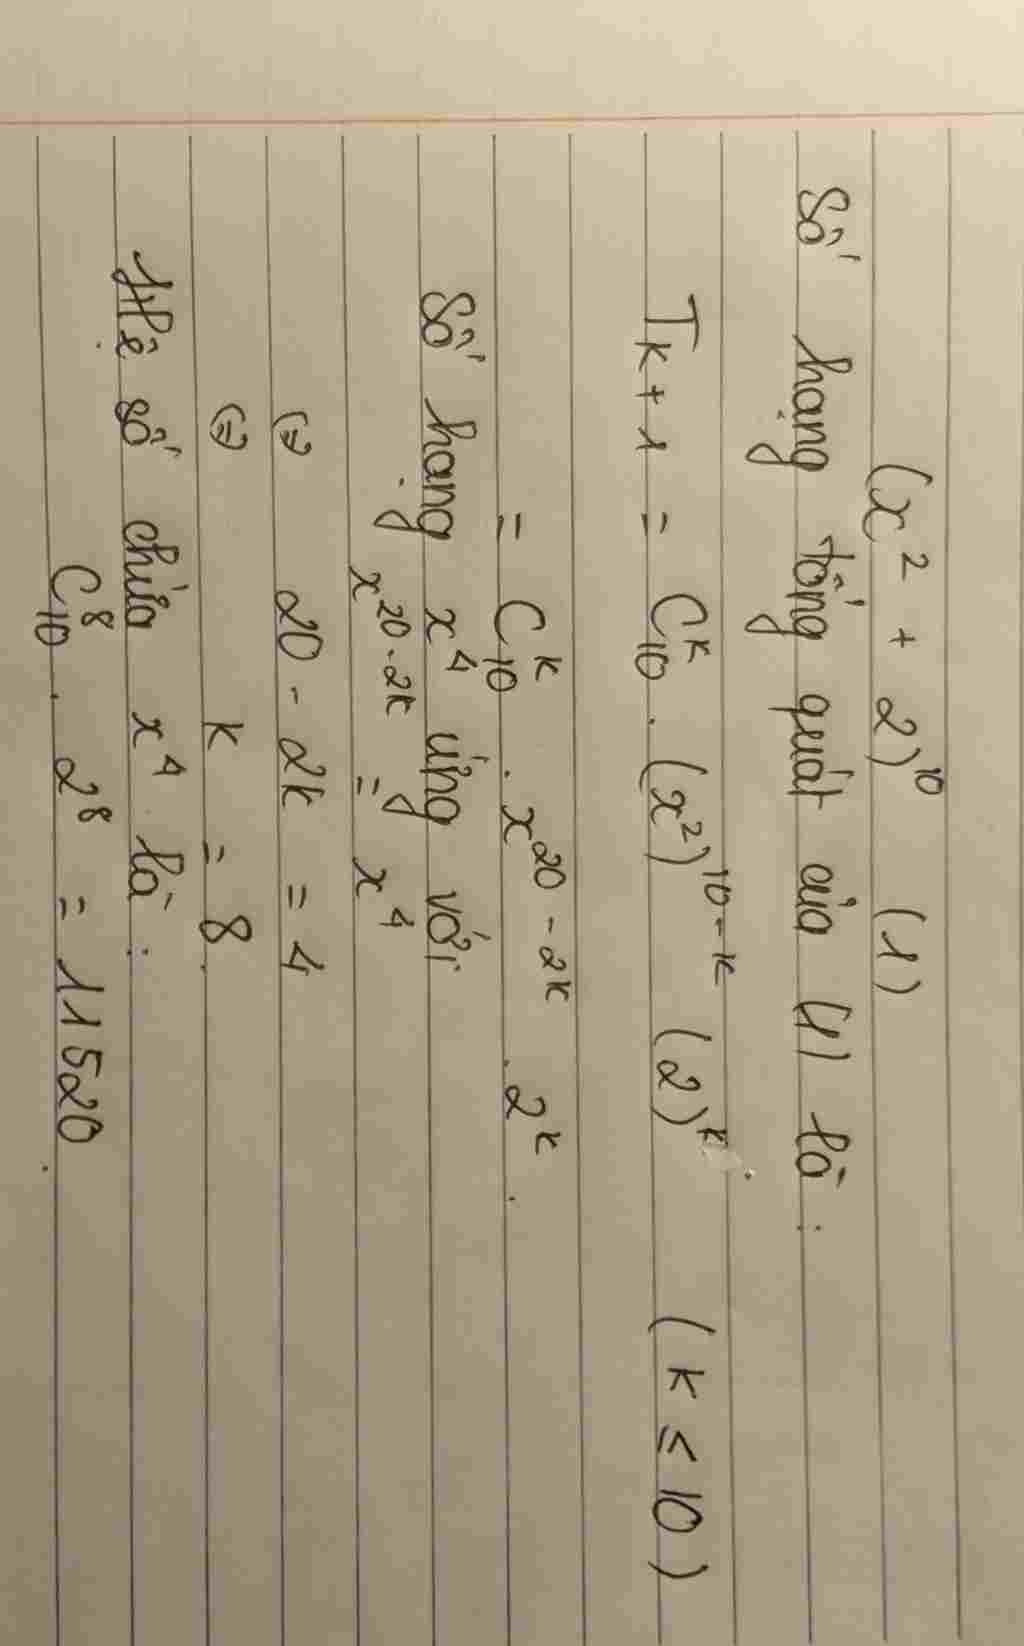 (x² + 2)¹⁰ (1)
Số hạng tổng quát của (1) là :
Tₖ₊₁ = C₁₀ᵏ . (x²)¹⁰⁻ᵏ (2)ᵏ . (k ≤ 10)
= C₁₀ᵏ . x²⁰⁻²ᵏ . 2ᵏ .
Số hạng x⁴ ứng với
x²⁰⁻²ᵏ = x⁴
(=) 20 - 2k = 4
(=) k = 8 .
Hệ số chứa x⁴ là :
C₁₀⁸ . 2⁸ = 11520 .